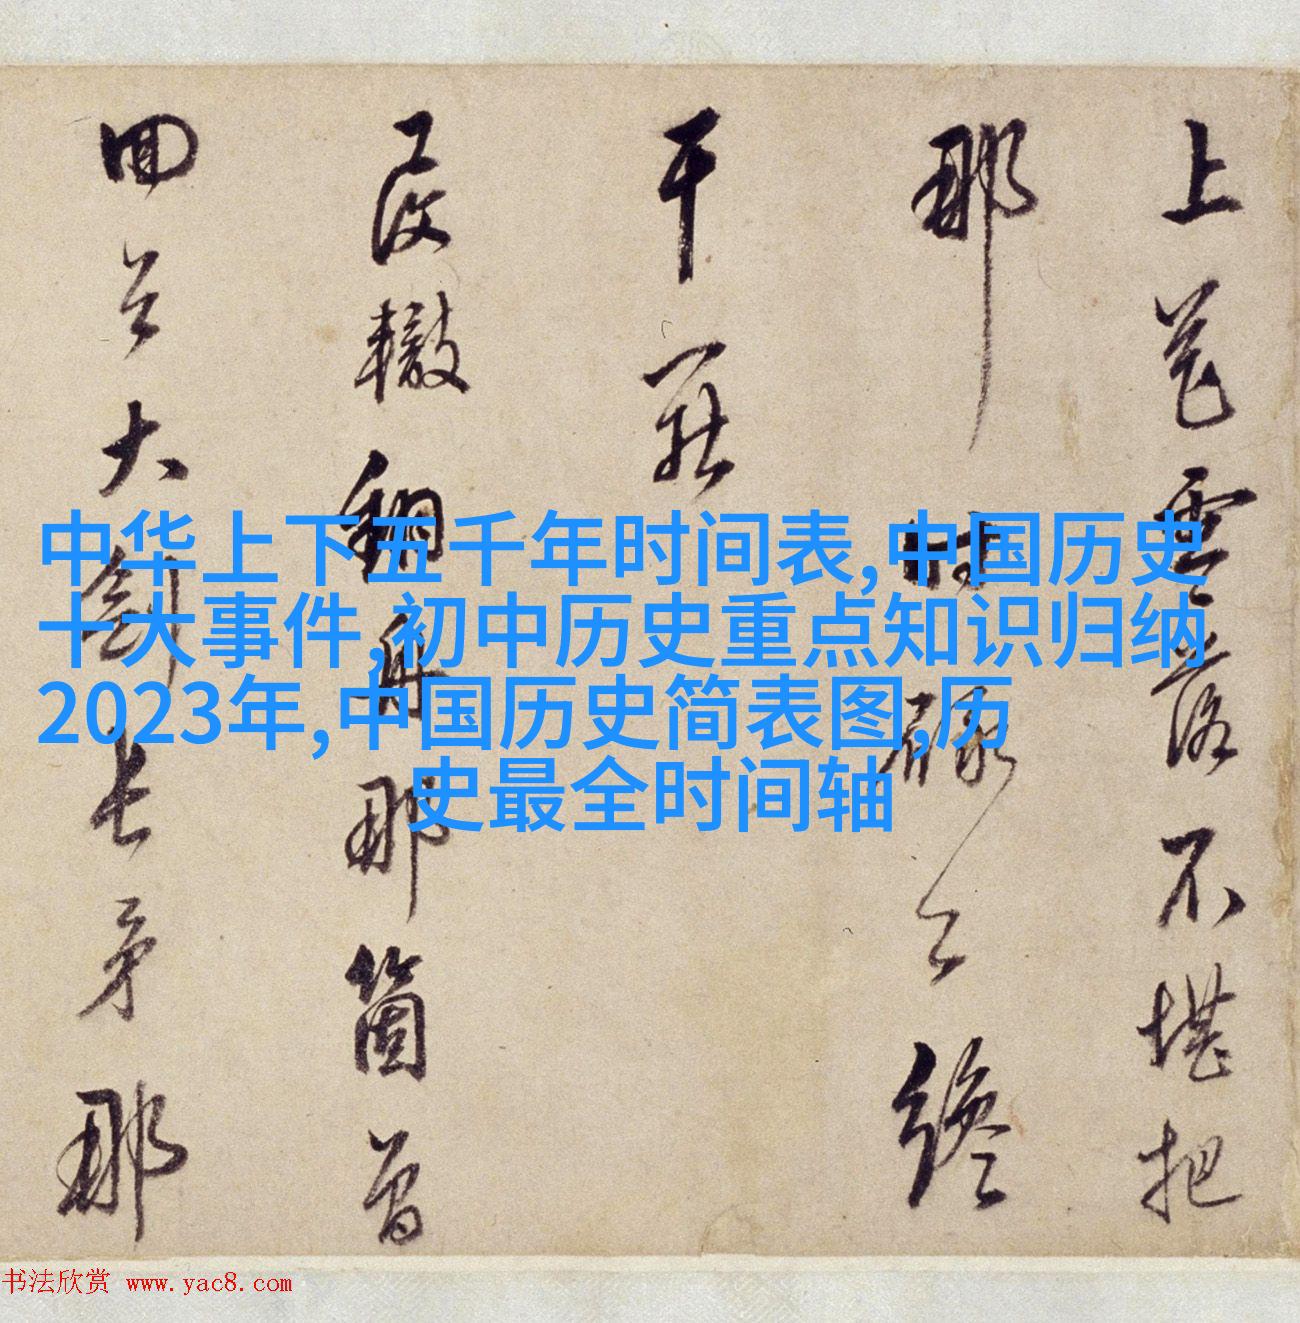 中华上下五千年时间表,中国历史
十大事件,初中历史重点知识归纳
2023年,中国历史简表图,历
史最全时间轴
上雲落不堪把
那碌
干
轍翻身那箇
回大劍長矛那
书法欣赏 www.yac8.com